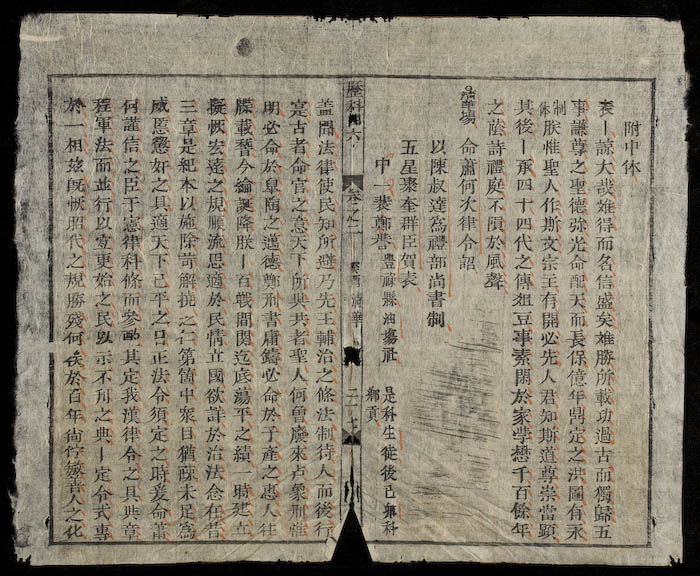 附中休
表丨諒大哉難得而名信盛矣难勝所載功過古而獨歸五
事謙尊之聖德弥光命配天而長保億年鼎定之洪圖有永
制体朕惟聖人作斯文宗主有開必先人君知斯道尊崇當顯
其後丨承四十四代之傳俎豆事素閑於家学懋千百餘年
之蔭詩禮庭不隕於風聲
清華場 命蕭何次律令詔
以陳叔達爲禮部尚書制
五星聚奎群臣賀表
中一裴鄭譽 豊禄縣油場社 是科生徒後己卯科鄉貢
歷科 六 卷之二 癸酉 清華 二十七
盖聞法律使民知所避乃先王輔治之條法制待人而後行
寔古者命官之意天下所共共者聖人何曾廢来占蒙刑惟
明必命於皐陶之邁德鄭刑書庸鑄必命於子產之惠人往
牒載稽今綸誕降朕丨百戰間関迄底蕩平之績一時建立
擬恢宏遠之規順流思適於民情立國欲詳於治法念在昔
三章是紀本以施除苛解撓之仁第箇中衆目猶踈未足爲
威慝懲奸之具適天下已平之日正法令須定之時爰命蕭
何謹信之臣于憲律科條而參酌其定我漢律令之具些章
程軍法而並行以壹更始之民以示不刋之典丨定令式專
於一相茲旣恢昭代之規勝殘何俟於百年尚佇臻善人之化